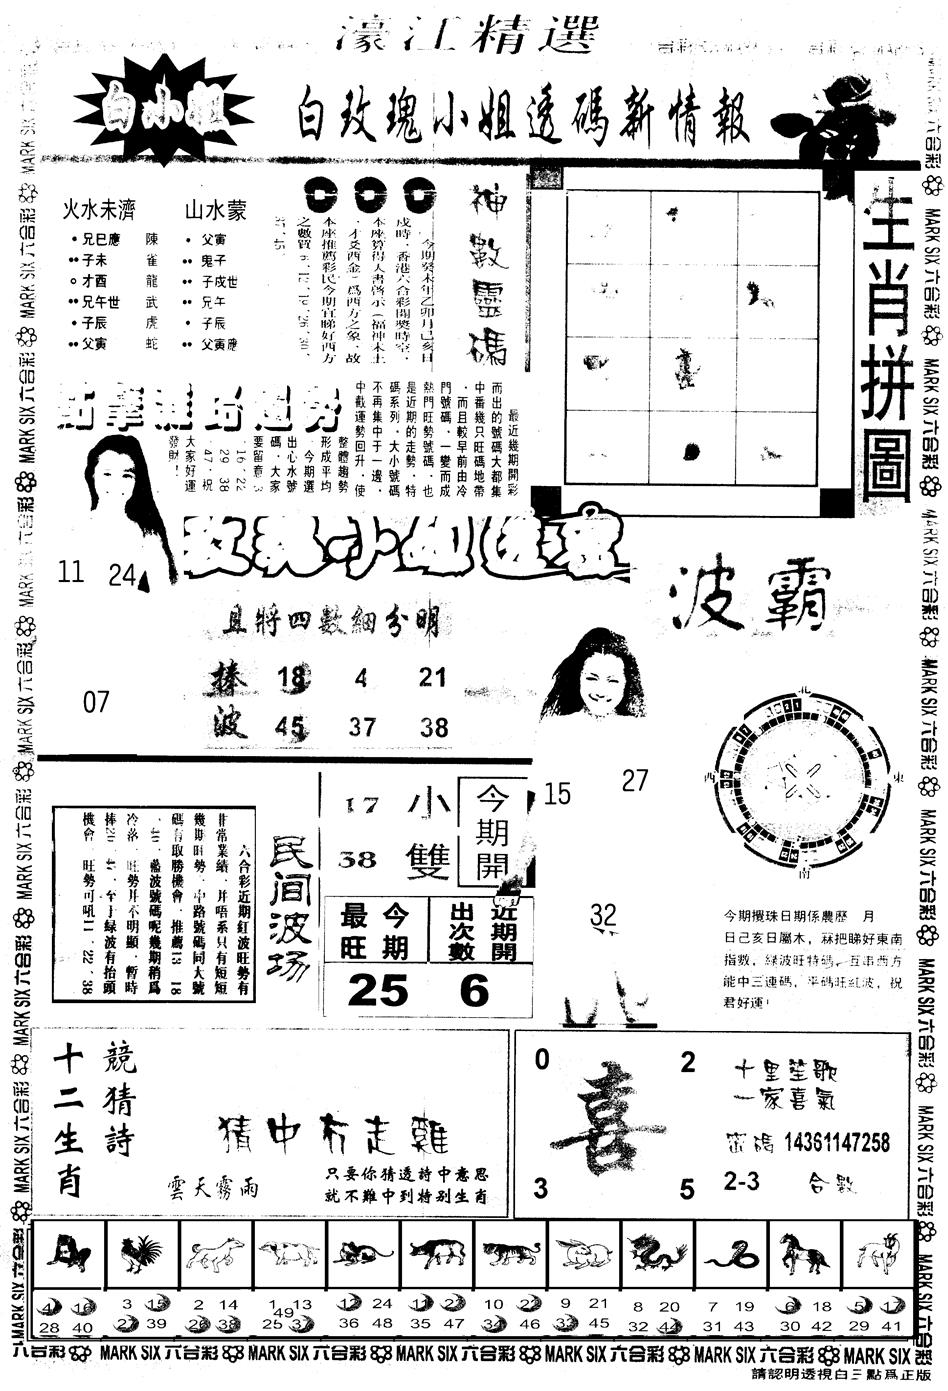 濠江精選
白小姐
白玫瑰小姐透碼新情報
火水未濟
山水蒙
兄巳應 陳
子未 雀
才酉 龍
兄午世 武
子辰 虎
父寅 蛇
父寅
鬼子
子戍世
兄午
子辰
父寅應
神數靈碼
今期癸未年乙卯月己亥日
戍時，香港六合彩開獎時空，
本座算得天書啓示（福神未土
，才爻酉金）爲西方之象，故
本座推薦彩民今期宜睇好西方
生肖拼圖
最近幾期開彩
而出的號碼大都集
中番幾只旺碼地帶
，而且較早前由冷
門號碼，一變而成
熱門旺勢號碼，也
是近期的走勢，特
碼系列，大小號碼
不再集中于一邊，
中截運勢回升，使
整體趨勢
形成平均
，今期選
出心水號
碼，大家
要留意3
、16、22
、29、38
、47，祝
大家好運
發財！
11 24
07
且將四數細分明
捧 18 4 21
波 45 37 38
波霸
15 27
32
北
西 東
南
今期攪珠日期係農歷 月
日己亥日屬木，冧把睇好東南
指數，綠波旺特碼，互串西方
能中三連碼，平碼旺紅波，祝
君好運！
民间波场
六合彩近期紅波旺勢有
非常業績，并唔系只有短短
幾期旺勢，中路號碼同大號
碼有取勝機會，推薦13、18
、40，藍波號碼呢幾期稍爲
冷落，旺勢并不明顯，暫時
捧20、47，至于緑波有抬頭
機會，旺勢可吼11、22、38
17 小
38 雙
今期開
今期最旺
近期開出次數
25 6
十二生肖
競猜詩
猜中有走雞
雲天霧雨
只要你猜透詩中意思
就不難中到特别生肖
0 2
喜
3 5
十里笙歌
一家喜氣
密碼 14361147258
2-3 合數
4 16 28 40
3 15 27 39
2 14 26 38
1 13 49 25 37
12 24 36 48
11 23 35 47
10 22 34 46
9 21 33 45
8 20 32 44
7 19 31 43
6 18 30 42
5 17 29 41
MARK SIX 六合彩 MARK SIX 六合彩 MARK SIX 六合彩 MARK SIX 六合彩 MARK SIX
請認明透視白三點爲正版